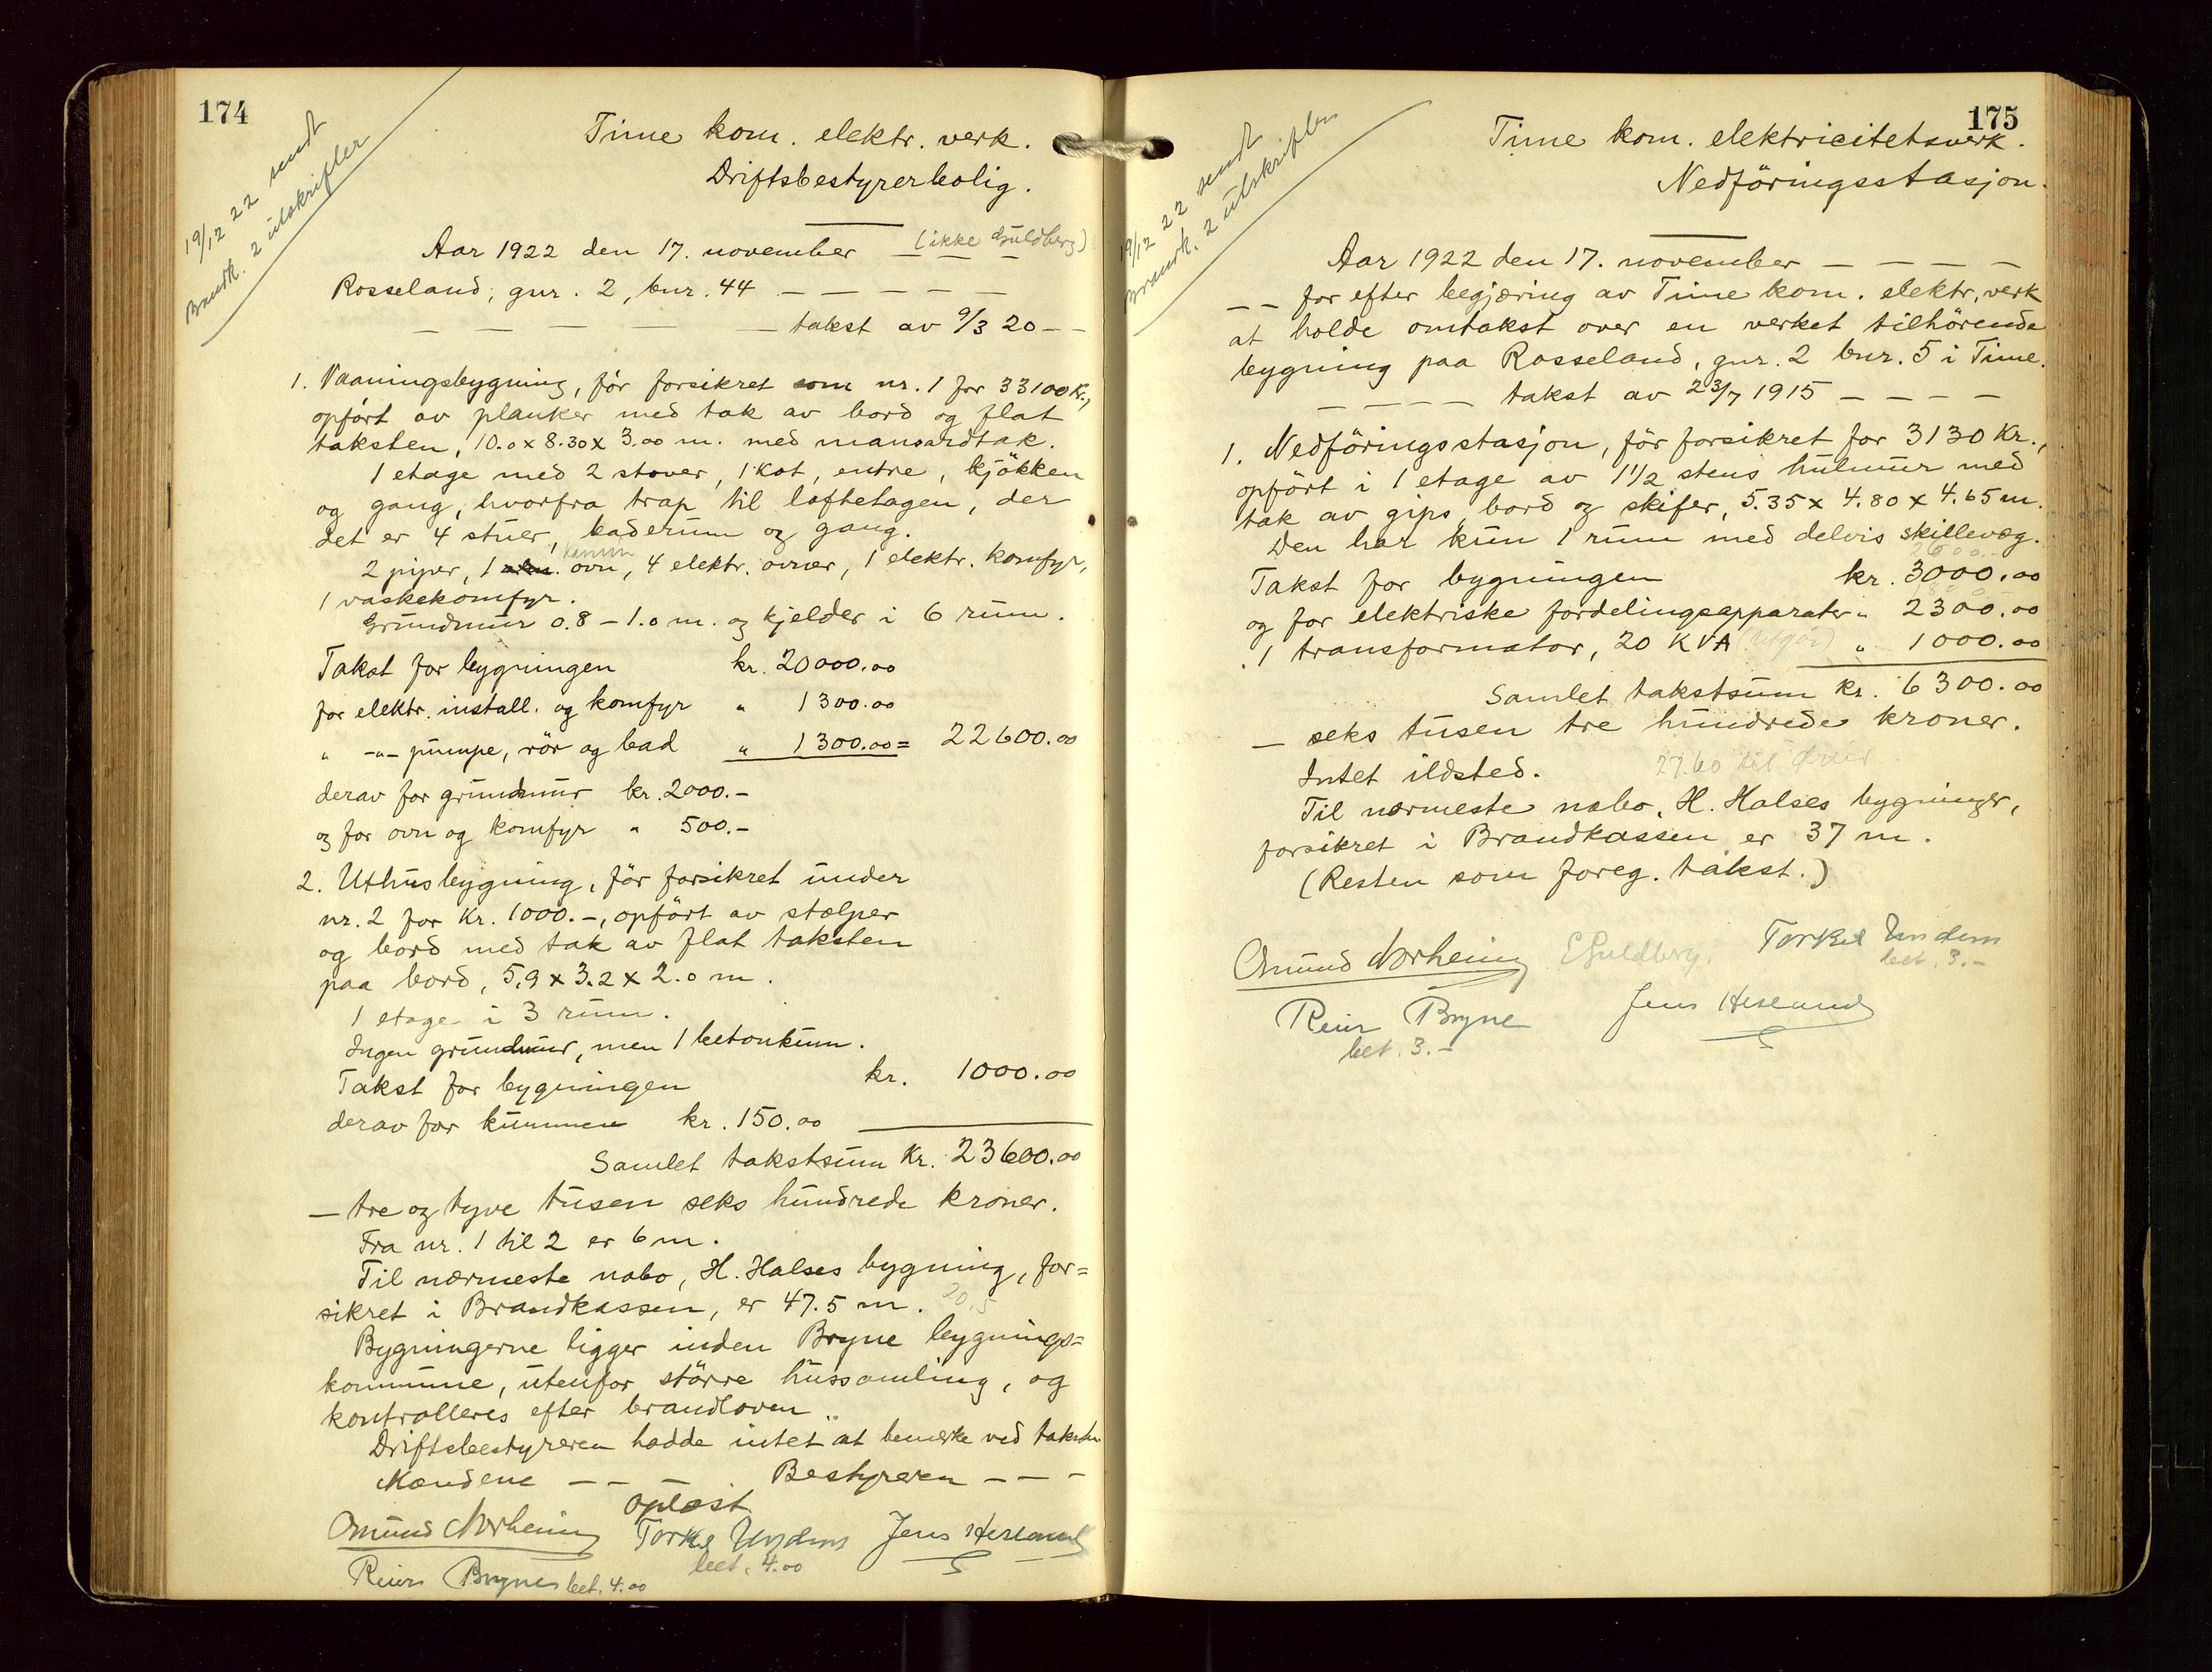 174
19/12 22 sendt
Brandk. 2 utskrifter
Time kom. elektr. verk.
Driftsbestyrerbolig.
Aar 1922 den 17. november — — — (ikke Guldberg)
Rosseland, gnr. 2, bnr. 44 — — — — —
— — — — — takst av 9/3 20 — —
1. Vaaningsbygning, før forsikret som nr. 1 for 33100 Kr.,
opført av planker med tak av bord og flat
taksten, 10.0 x 8.30 x 3.00 m. med mansardtak.
1 etage med 2 stover, 1 kot, entre, kjökken
og gang, hvorfra trap til loftetagen, der
det er 4 stuer, baderum og gang.
2 piper, 1 kamin ovn, 4 elektr. ovner, 1 elektr. komfyr,
1 vaskekomfyr.
Grundmur 0.8 – 1.0 m. og kjelder i 6 rum.
Takst for bygningen kr. 20000.00
for elektr. install. og komfyr " 1300.00
" -"- pumpe, rör og bad " 1300.00 = 22600.00
derav for grundmur kr. 2000.–
og for ovn og komfyr " 500.–
2. Uthusbygning, för forsikret under
nr. 2 for Kr. 1000.–, opfört av stolper
og bord med tak av flat taksten
paa bord, 5.9 x 3.2 x 2.0 m.
1 etage i 3 rum.
Ingen grundmur, men 1 betonkum.
Takst for bygningen kr. 1000.00
derav for kummen kr. 150.00
Samlet takstsum Kr. 23600.00
— tre og tyve tusen seks hundrede kroner.
Fra nr. 1 til 2 er 6 m.
Til nærmeste nabo, H. Halses bygning, for=
sikret i Brandkassen, er 47.5 m. 20,5
Bygningerne ligger inden Bryne bygnings=
kommune, utenfor större hussamling, og
kontrolleres efter brandloven.
Driftsbestyreren hadde intet at bemerke ved taksten.
Mændene — — — Bestyreren — — —
Oplæst.
Omund Norheim Torkel Undem Jens Hesland
bet. 4.00
Reier Bryne bet. 4.00
175
19/12 22 sendt
Brandk. 2 utskrifter
Time kom. elektricitetsverk.
Nedföringsstasjon.
Aar 1922 den 17. november — — — —
— — for efter begjæring av Time kom. elektr. verk
at holde omtakst over en verket tilhörende
bygning paa Rosseland, gnr. 2 bnr. 5 i Time.
— — — — takst av 23/7 1915 — — — —
1. Nedföringsstasjon, för forsikret for 3130 Kr.,
opfört i 1 etage av 1 1/2 stens hulmur med
tak av gips, bord og skifer, 5.35 x 4.80 x 4.65 m.
Den har kun 1 rum med delvis skillevæg.
Takst for bygningen kr. 3000.00
og for elektriske fordelingsapparater " 2300.00
" 1 transformator, 20 KVA (utgår) " 1000.00
Samlet takstsum kr. 6300.00
— seks tusen tre hundrede kroner.
Intet ildsted.
Til nærmeste nabo, H. Halses bygninger,
forsikret i Brandkassen er 37 m.
(Resten som foreg. takst.)
Omund Norheim E Guldberg. Torkel Undem
bet. 3.–
Reier Bryne Jens Hesland
bet. 3.–